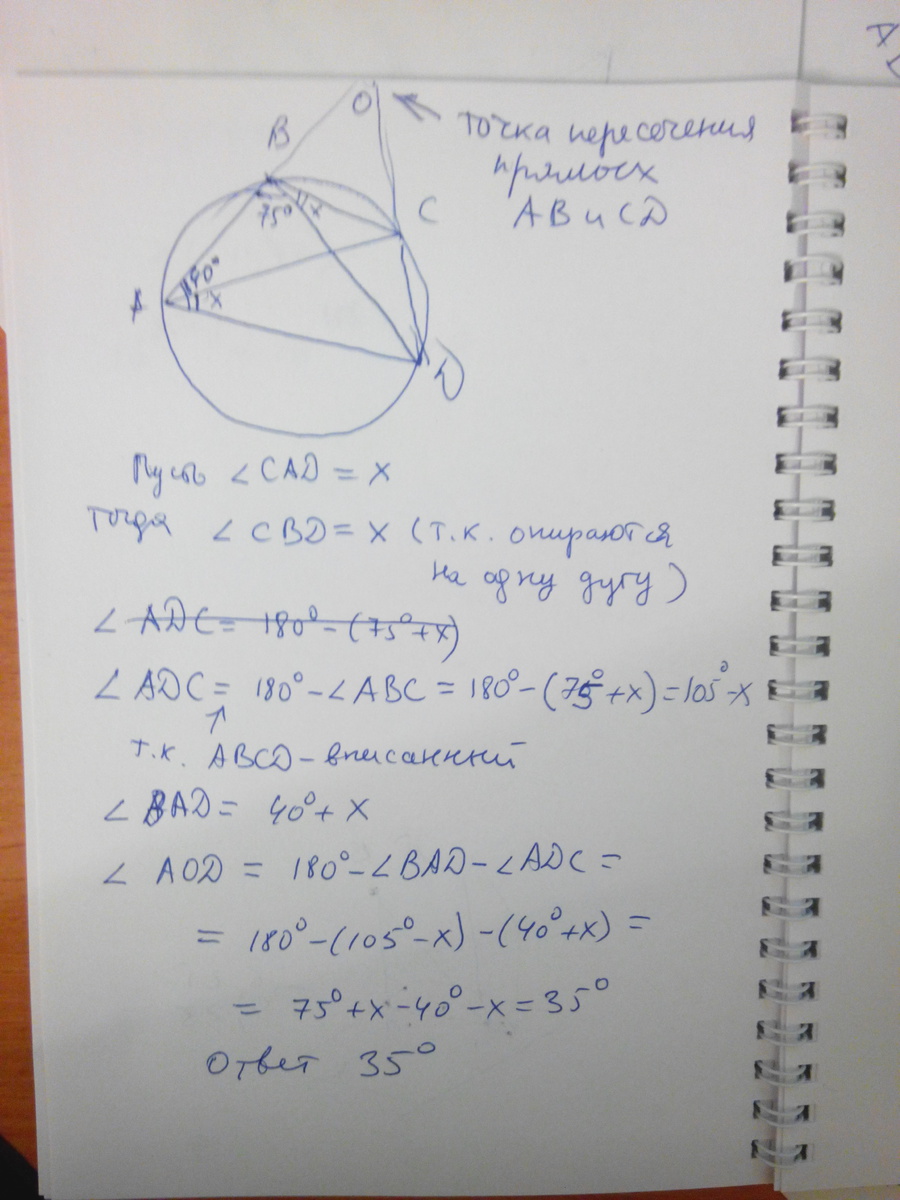 O
точка пересечения
прямых
AB и CD
B
C
75° x
40°
x
A
D
Пусть ∠ CAD = x
тогда ∠ CBD = x (т.к. опираются
на одну дугу)
∠ ADC = 180° - (75° + x)
∠ ADC = 180° - ∠ ABC = 180° - (75° + x) = 105° - x
т.к. ABCD - вписанный
∠ BAD = 40° + x
∠ AOD = 180° - ∠ BAD - ∠ ADC =
= 180° - (105° - x) - (40° + x) =
= 75° + x - 40° - x = 35°
Ответ 35°